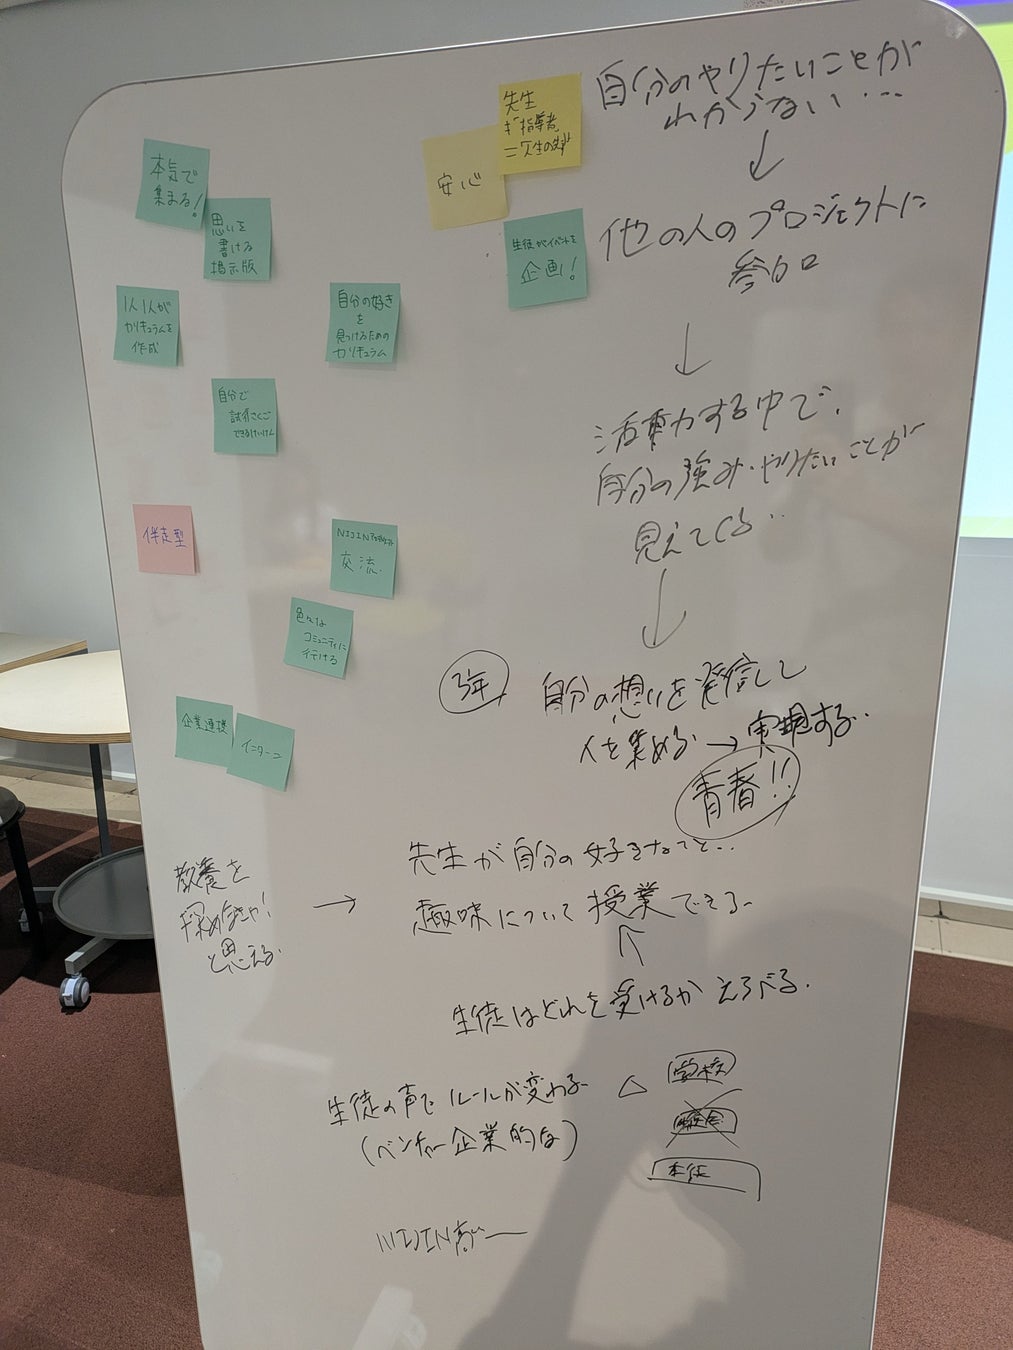 本気で
集まる!
思いを
書ける
掲示版
1人1人が
カリキュラムを
作成
自分の好き
を
見つけるための
カリキュラム
自分で
試行さくご
できるけいけん
安心
先生
≠指導者
生徒がイベントを
企画!
伴走型
NIJIN
交流
色々な
コミュニティに
行ける
企業連携
インターン
自分のやりたいことが
わからない…
↓
他の人のプロジェクトに
参加
↓
活動する中で、
自分の強み・やりたいことが
見えてくる…
↓
3年
自分の想いを発信して
人を集める → 実現する
青春!!
教養を
深めるべきだ!
と思える
→
先生が自分の好きなこと…
趣味について授業できる
↑
生徒はどれを受けるかえらべる。
生徒の声でルールが変わる
(ベンチャー企業的な)
△
学校
本社
NIJIN高ー